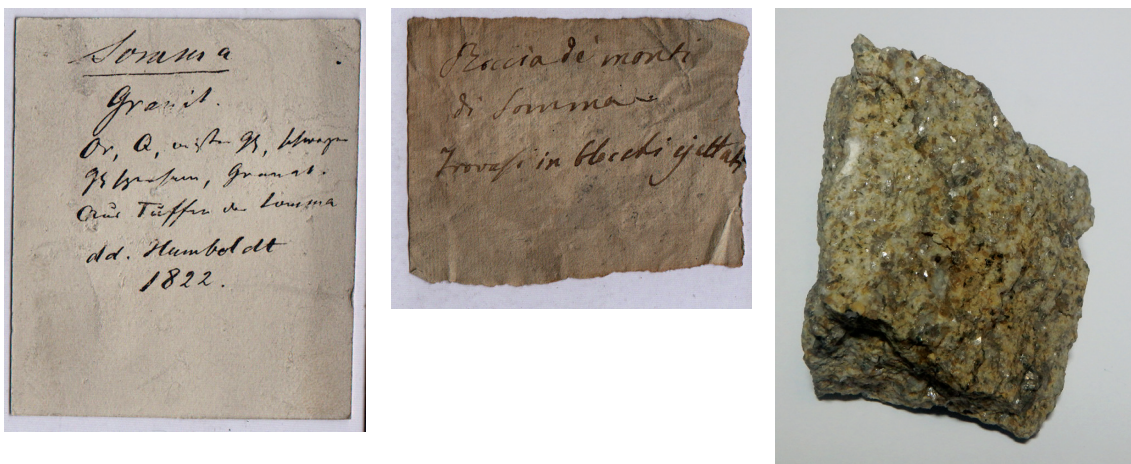 Somma
Granit.
Or, Q, Gl,
Granat.
Aus Tuffen der Somma
dd. Humboldt
1822.
Roccia de monti
di Somma
Trovasi in blocchi ejettati